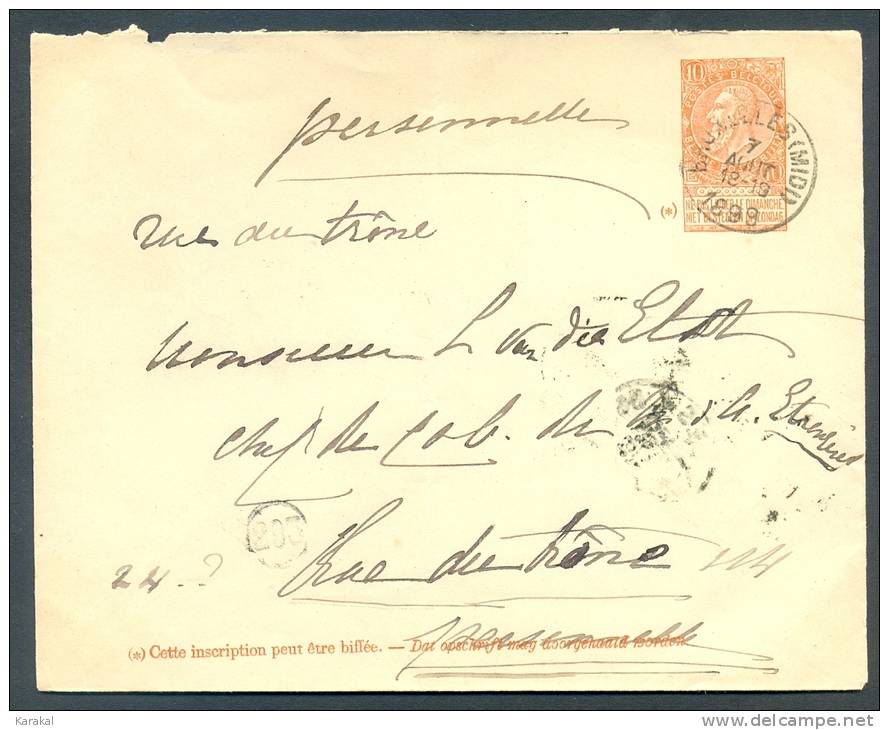 personnelle
10
POSTES BELGIQUE
BRUXELLES (MIDI)
7
AOUT
18-19
1899
(*)
NE PAS LIVRER LE DIMANCHE
NIET BESTELLEN OP ZONDAG
rue du trône
Monsieur L Van der Elst
Chef de Cab. du M. d. A. Etrangères
203
Rue du trône
22-?
personnelle
(*) Cette inscription peut être biffée. — Dat opschrift mag doorgehaald worden.
Karakal
www.delcampe.net